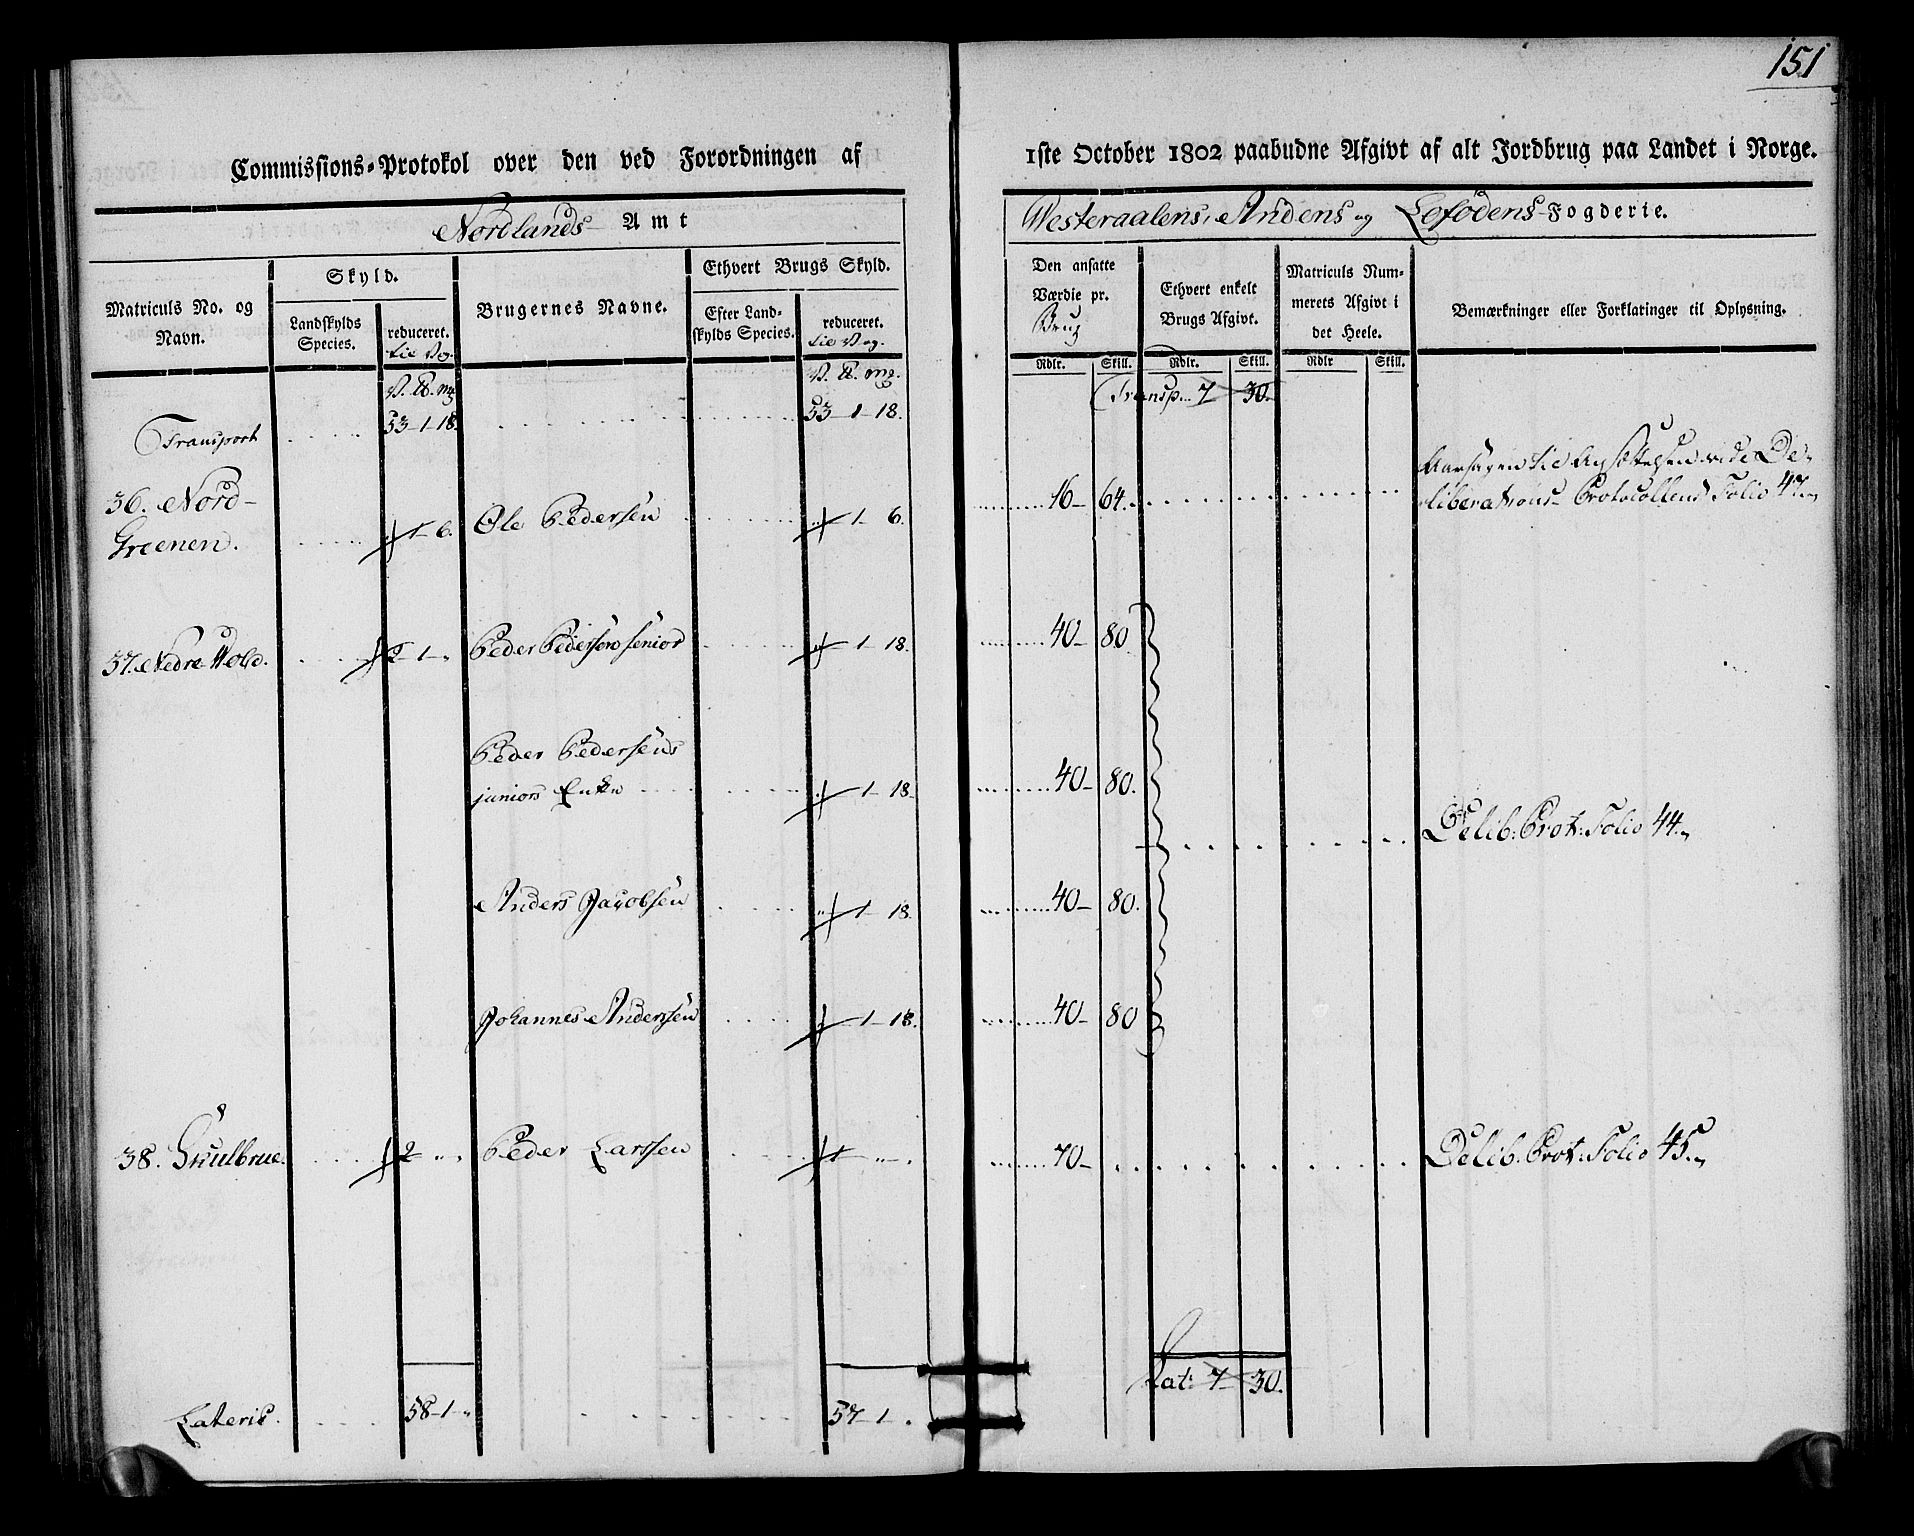 151
Commissions-Protokol over den ved Forordningen af
1ste October 1802 paabudne Afgivt af alt Jordbrug paa Landet i Norge.
Nordlands Amt
Westeraalens, Andens og Lofodens Fogderie.
Matriculs No. og Navn.
Skyld.
Landskylds Species.
reduceret. til Vog.
Brugernes Navne.
Ethvert Brugs Skyld.
Efter Landskylds Species.
reduceret. til Vog.
Den ansatte Værdie pr. Brug
Ethvert enkelt Brugs Afgivt.
Matriculs Nummerets Afgivt i det Heele.
Bemærkninger eller Forklaringer til Oplysning.
Rdlr. Skill. Rdlr. Skill. Rdlr Skill.
V. ℔. mg. V. ℔. mg. Transp... 7 30.
Transport 53-1-18. 53-1-18.
Aarsagen til Ansættelsen vide De-
36. Nord- Ole Pedersen 16- 64. liberations-Protocollens Folio 47.
Greenen. 1-6. 1-6.
37. Nedre Wold. 2-1-" Peder Pedersen senior 1-18. 40- 80
Peder Pedersens
juniors Enke 1-18. 40- 80.
Delib: Prot: Folio 44.
Anders Jacobsen " 1-18. 40- 80.
Johannes Andersen 1-18. 40- 80
38. Skulbrue. 2 " " Peder Larssen 1 " " 70- Delib: Prot: Folio 45.
Lat: 7- 30.
Lateris. 58-1-" 57-1.